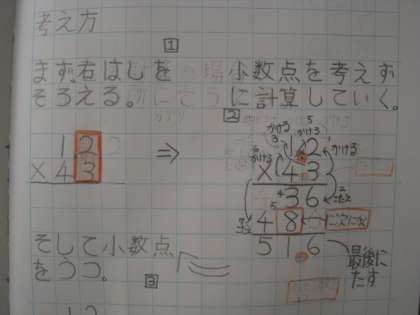 考え方
1
まず右はしを 小数点を考えず
そろえる。 に計算していく。
2
12 ⇒ 1.2
×43 ×4.3
36
48
51.6
かける
かける
かける
次に次に
最後に
たす
そして小数点
をうつ。
3